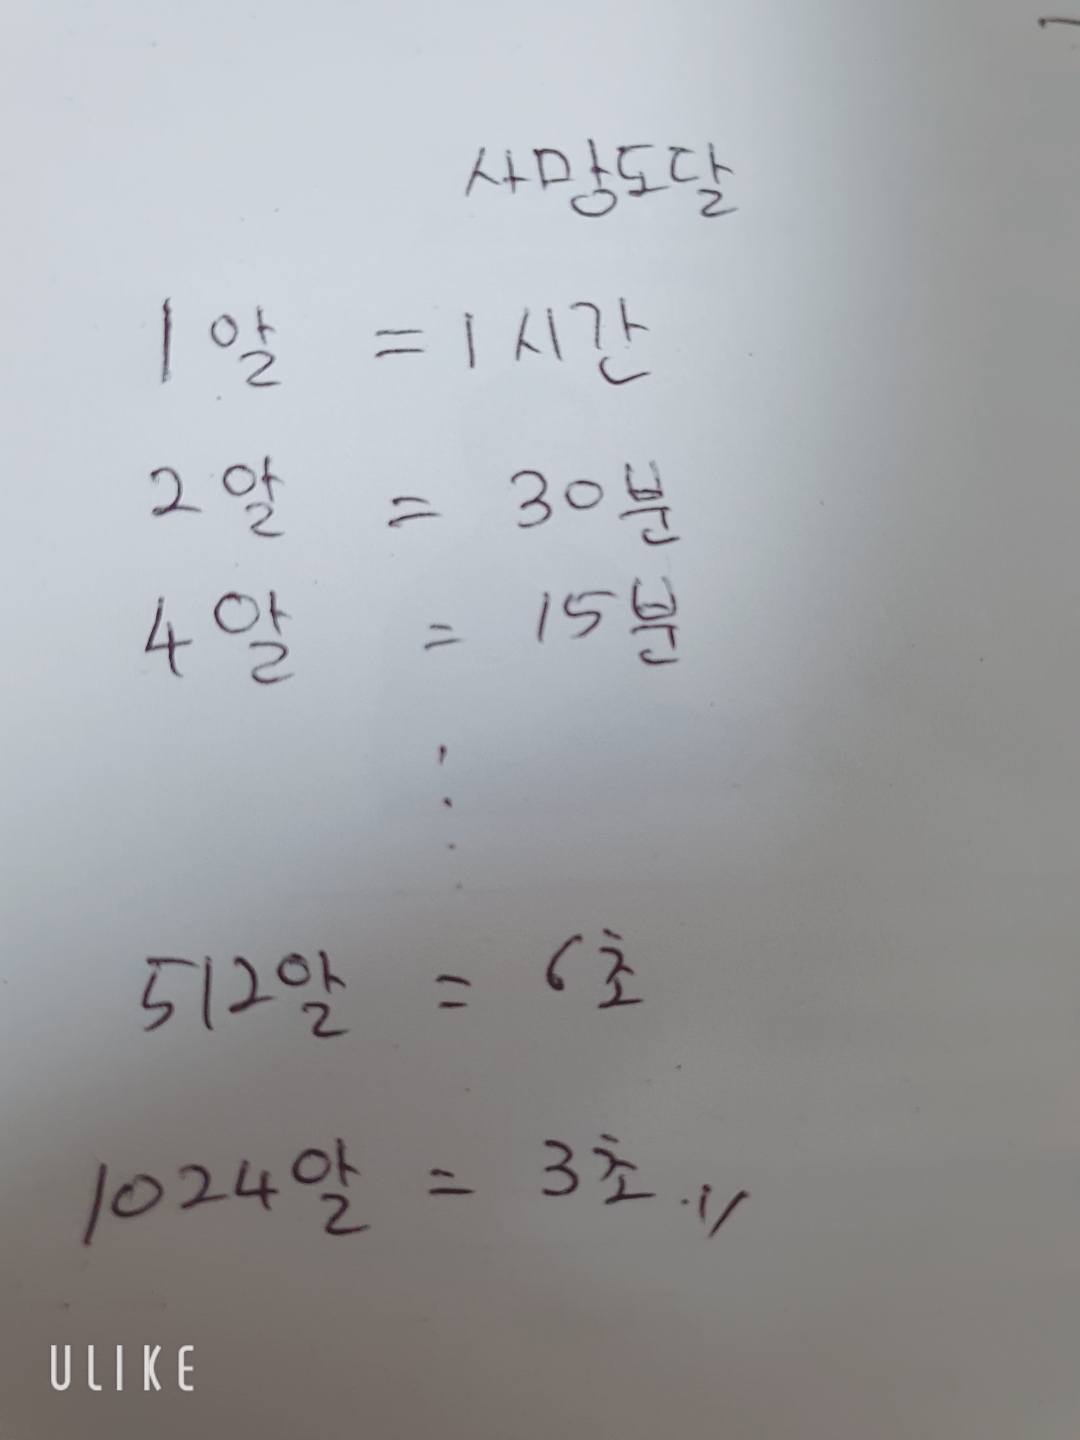 사망도달
1알 = 1시간
2알 = 30분
4알 = 15분
⋮
512알 = 6초
1024알 = 3초
ULIKE